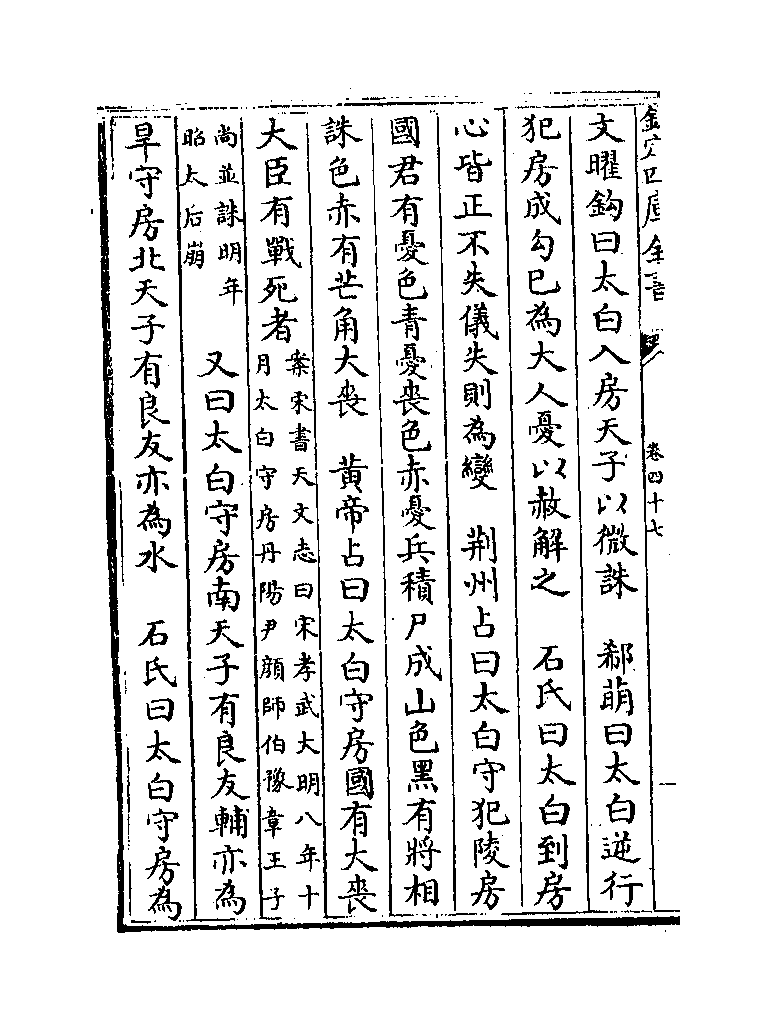 欽定四庫全書
卷四十七
文曜鈎曰太白入房天子以微誅　郗萌曰太白逆行
犯房成勾巳為大人憂以赦解之　石氏曰太白到房
心皆正不失儀失則為變　荆州占曰太白守犯陵房
國君有憂色青憂喪色赤憂兵積尸成山色黑有將相
誅色赤有芒角大喪　黄帝占曰太白守房國有大喪
大臣有戰死者案宋書天文志曰宋孝武大明八年十
月太白守房丹陽尹顔師伯豫章王子
尚並誅明年
昭太后崩　又曰太白守房南天子有良友輔亦為
旱守房北天子有良友亦為水　石氏曰太白守房為